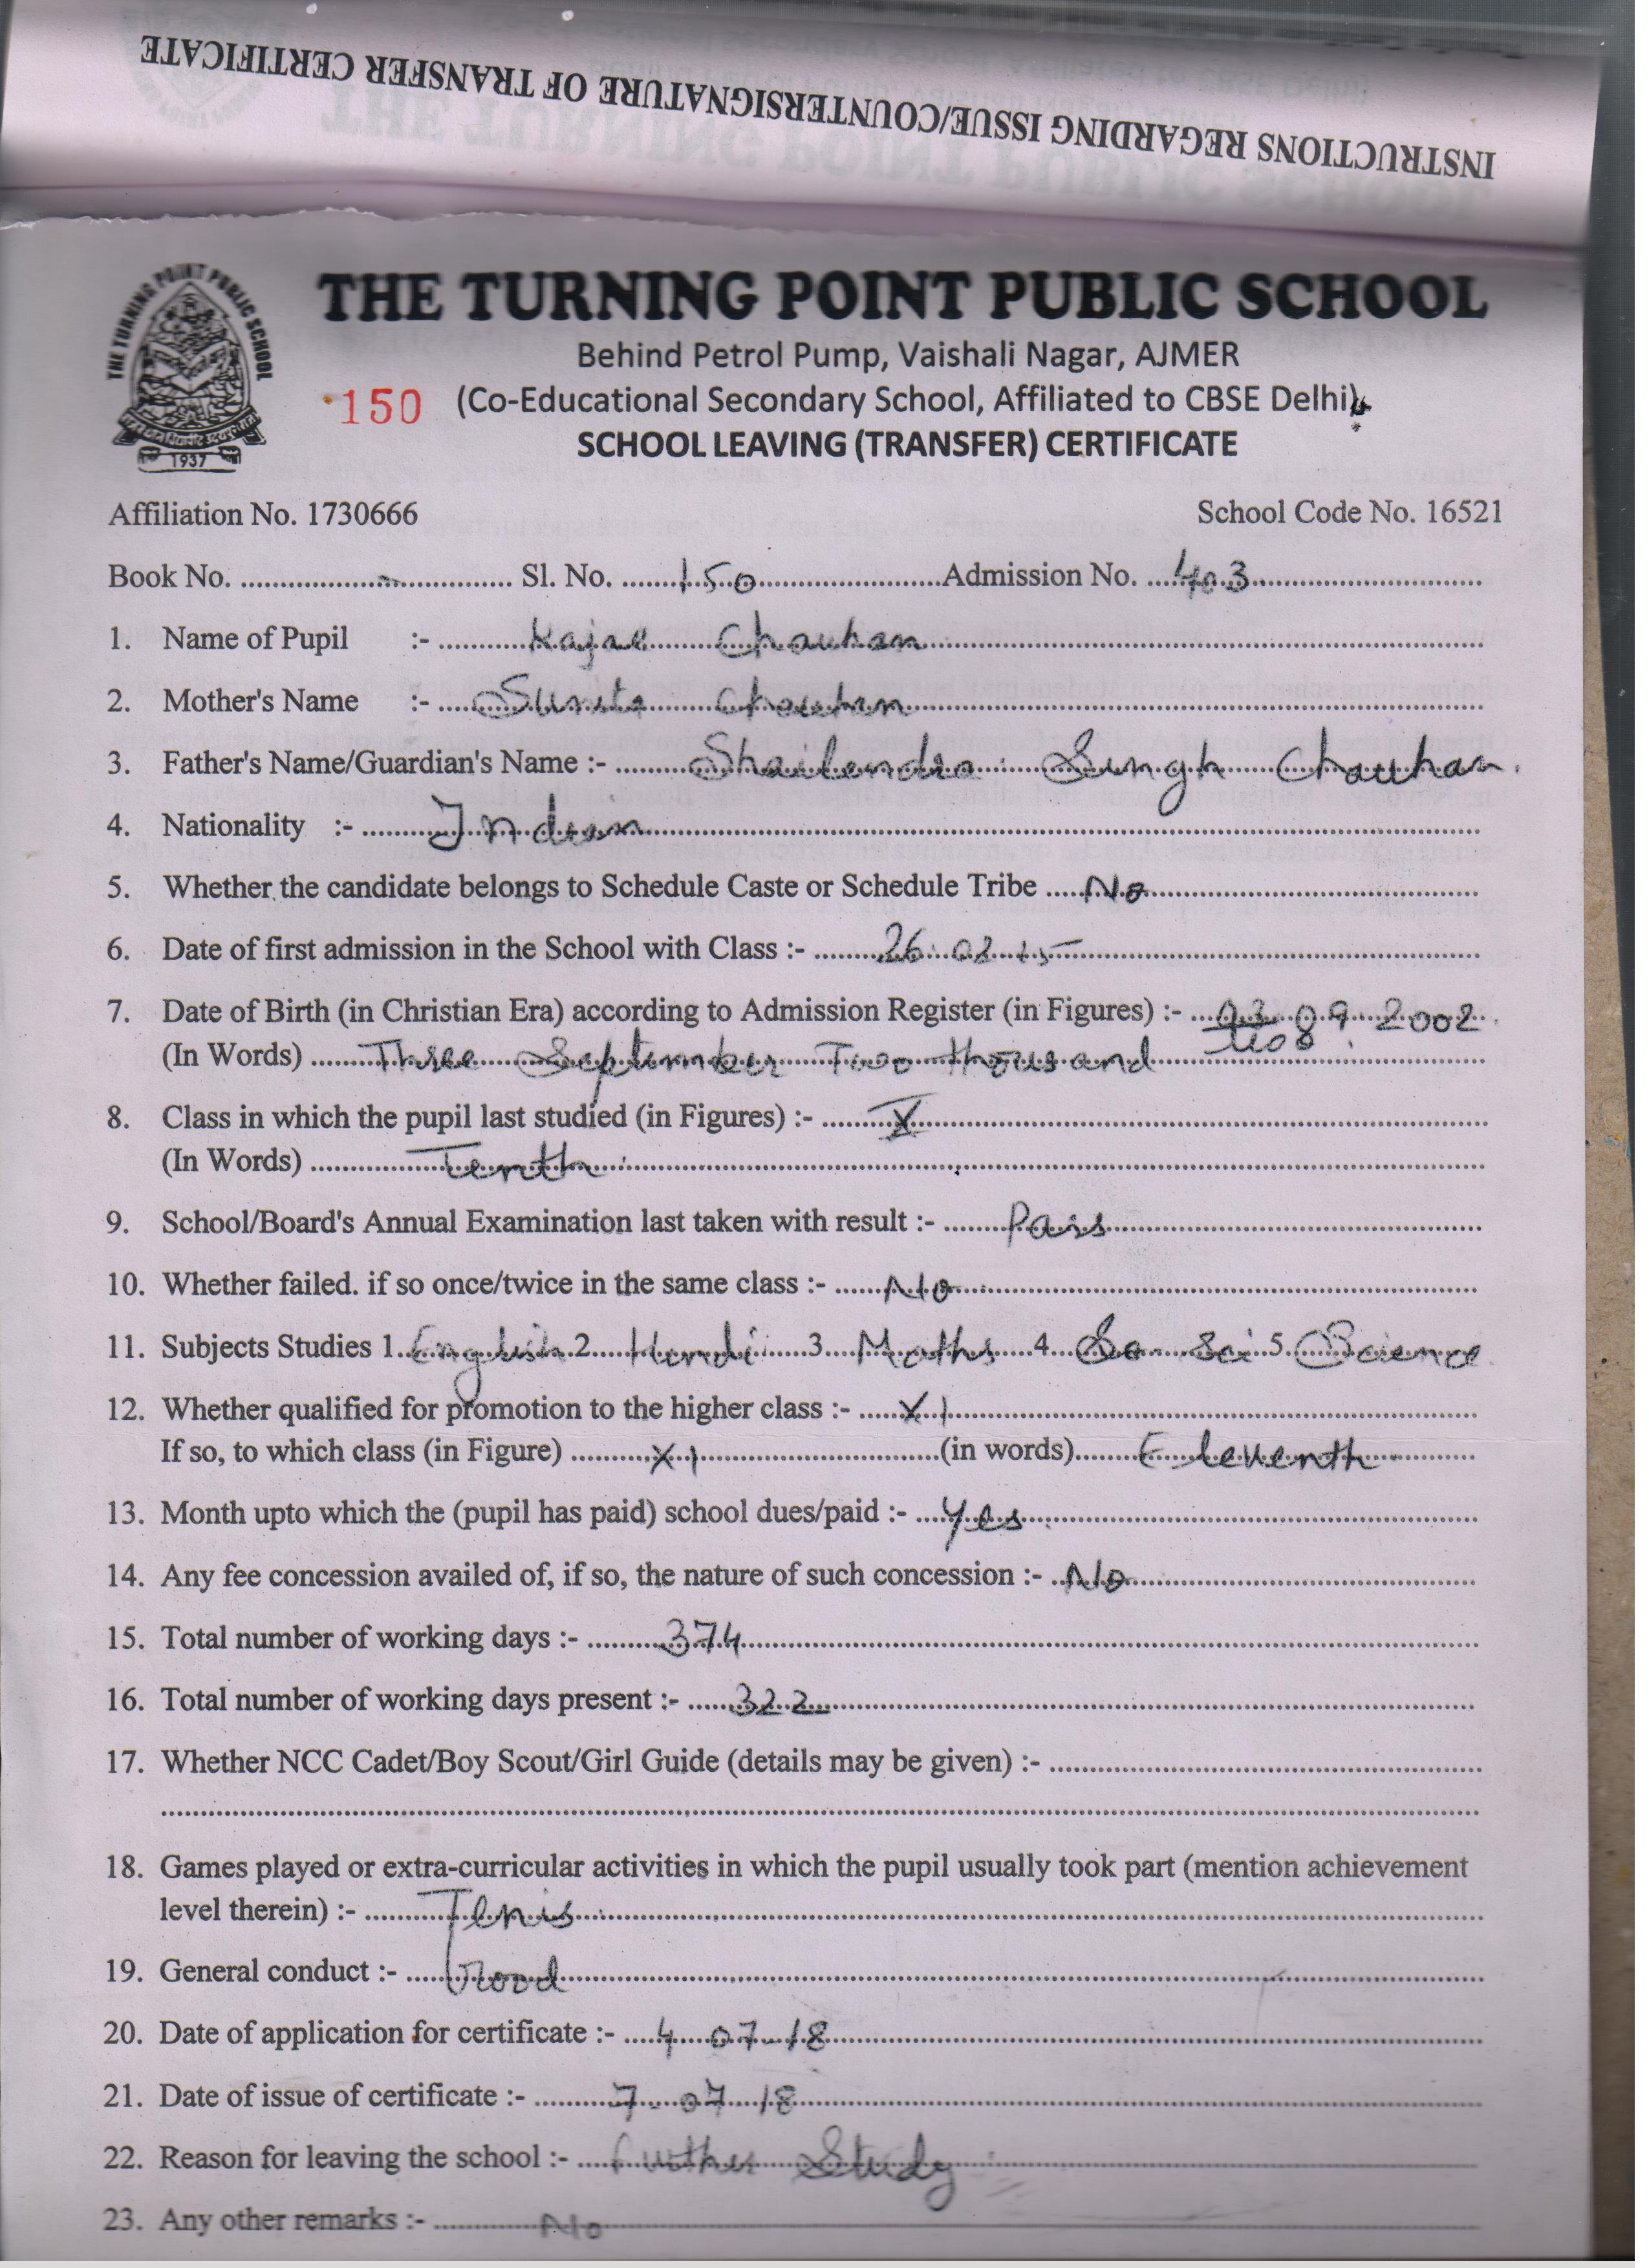 INSTRUCTIONS REGARDING ISSUE/COUNTERSIGNATURE OF TRANSFER CERTIFICATE
THE TURNING POINT PUBLIC SCHOOL
1937
THE TURNING POINT PUBLIC SCHOOL
Behind Petrol Pump, Vaishali Nagar, AJMER
150 (Co-Educational Secondary School, Affiliated to CBSE Delhi)
SCHOOL LEAVING (TRANSFER) CERTIFICATE
Affiliation No. 1730666 School Code No. 16521
Book No. - Sl. No. 150 Admission No. 403
1. Name of Pupil :- Kajal Chauhan
2. Mother's Name :- Sunita Chauhan
3. Father's Name/Guardian's Name :- Shailendra Singh Chauhan.
4. Nationality :- Indian
5. Whether the candidate belongs to Schedule Caste or Schedule Tribe No
6. Date of first admission in the School with Class :- 26.02.15
7. Date of Birth (in Christian Era) according to Admission Register (in Figures) :- 03.09.2002
(In Words) Three September Two thousand two
8. Class in which the pupil last studied (in Figures) :- X
(In Words) Tenth
9. School/Board's Annual Examination last taken with result :- Pass
10. Whether failed. if so once/twice in the same class :- No
11. Subjects Studies 1. English 2. Hindi 3. Maths 4. So Sci 5. Science
12. Whether qualified for promotion to the higher class :- XI
If so, to which class (in Figure) XI (in words) Eleventh
13. Month upto which the (pupil has paid) school dues/paid :- Yes
14. Any fee concession availed of, if so, the nature of such concession :- No
15. Total number of working days :- 374
16. Total number of working days present :- 322
17. Whether NCC Cadet/Boy Scout/Girl Guide (details may be given) :-
18. Games played or extra-curricular activities in which the pupil usually took part (mention achievement
level therein) :- Tenis
19. General conduct :- Good
20. Date of application for certificate :- 4-07-18
21. Date of issue of certificate :- 7-07-18
22. Reason for leaving the school :- Further Study
23. Any other remarks :- No